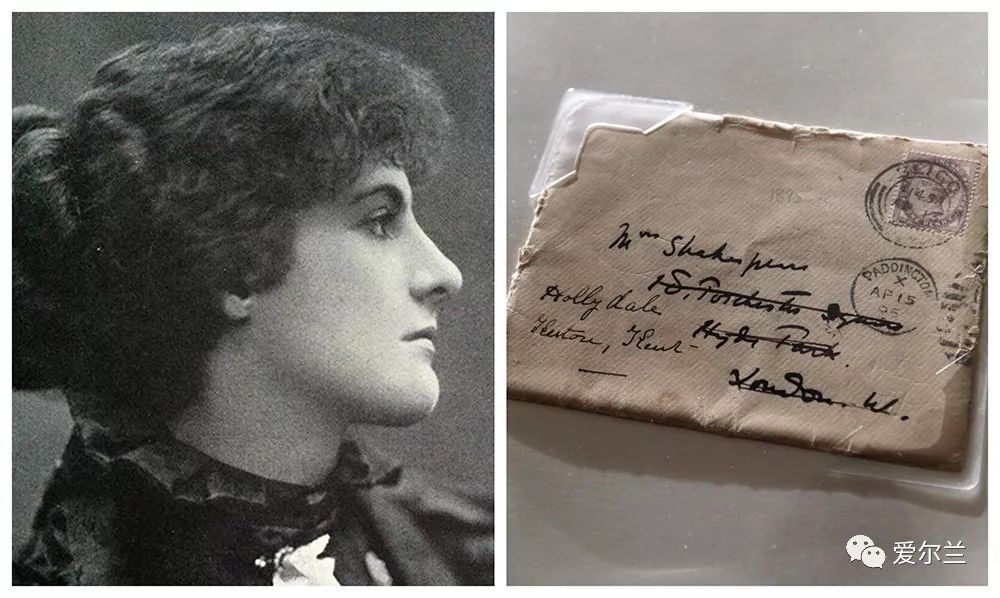 1895
SLIGO
Mrs Shakespear
PADDINGTON
X
AP 15
95
18. Porchester Square
Hollydale
Hyde Park.
Keston, Kent
London. W.
爱尔兰